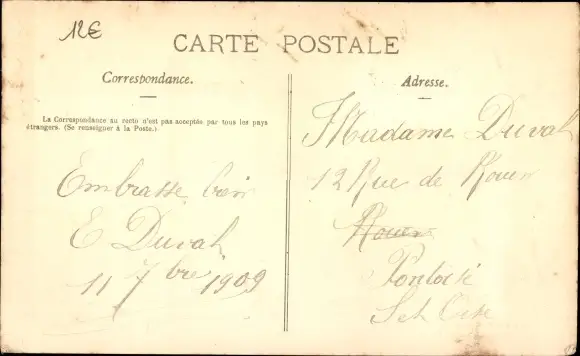 12€
CARTE POSTALE
Correspondance.
La Correspondance au recto n'est pas acceptée par tous les pays
étrangers. (Se renseigner à la Poste.)
Embrasse bien
E Duval
11 7bre 1909
Adresse.
Madame Duval
12 Rue de Rouen
Rouen
Pontoise
Oise